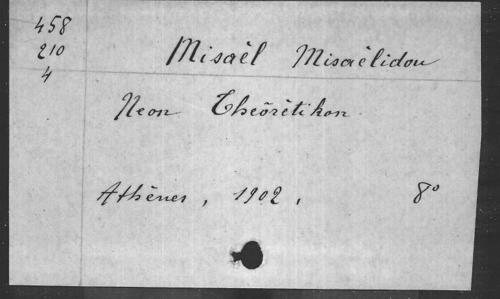 458
210
4
Misaèl Misaèlidou
Neon Theōrètikon
Athènes, 1902, 8°